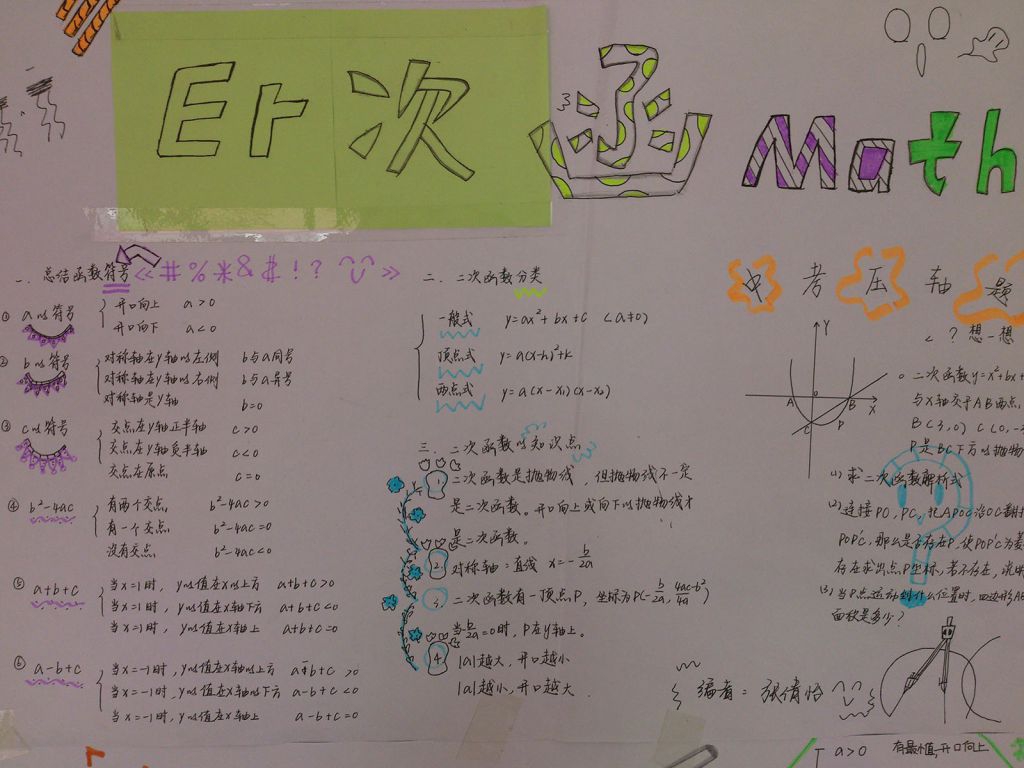 Er次函Math
一、总结函数符号《#%*&$!?》
① a的符号
开口向上 a>0
开口向下 a<0
② b的符号
对称轴在y轴的左侧 b与a同号
对称轴在y轴的右侧 b与a异号
对称轴是y轴 b=0
③ c的符号
交点在y轴正半轴 c>0
交点在y轴负半轴 c<0
交点在原点 c=0
④ b²-4ac
有两个交点 b²-4ac>0
有一个交点 b²-4ac=0
没有交点 b²-4ac<0
⑤ a+b+c
当x=1时，y的值在x的上方 a+b+c>0
当x=1时，y的值在x轴下方 a+b+c<0
当x=1时，y的值在x轴上 a+b+c=0
⑥ a-b+c
当x=-1时，y的值在x轴的上方 a-b+c>0
当x=-1时，y的值在x轴的下方 a-b+c<0
当x=-1时，y的值在x轴上 a-b+c=0
二、二次函数分类
一般式 y=ax²+bx+c (a≠0)
顶点式 y=a(x-h)²+k
两点式 y=a(x-x₁)(x-x₂)
三、二次函数的知识点
1 二次函数是抛物线，但抛物线不一定
是二次函数。开口向上或向下的抛物线才
是二次函数。
2 对称轴=直线 x=-b/2a
3 二次函数有一顶点P，坐标为P(-b/2a, 4ac-b²/4a)
当b/2a=0时，P在y轴上。
4 |a|越大，开口越小
|a|越小，开口越大.
中考压轴题
? 想一想
Y
A O B X
C P
二次函数y=x²+bx+
与X轴交于AB两点，
B(3,0) C(0,-
P是BC下方的抛物
(1) 求二次函数解析式
(2) 连接PO，PC，把△POC沿OC翻
POP'C，那么是否存在P，使POP'C为菱
存在求出点P坐标，若不存在，说
(3) 当P点运动到什么位置时，四边形AB
面积是多少?
编者：张倩
a>0 有最小值，开口向上